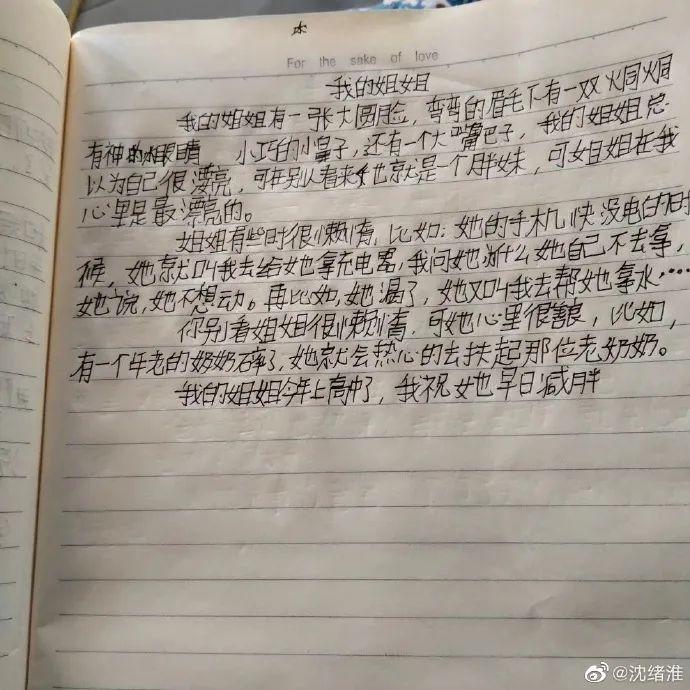 For the sake of love
我的姐姐
我的姐姐有一张大圆脸,弯弯的眉毛下有一双炯炯
有神的眼睛 小巧的小鼻子,还有一个大嘴巴子,我的姐姐总
以为自己很漂亮,可在别人看来她也就是一个胖妹,可姐姐在我
心里是最漂亮的。
姐姐有些时很懒惰,比如:她的手机快没电的时
候,她就叫我去给她拿充电器,我问她为什么她自己不去拿,
她说,她不想动。再比如,她渴了,她又叫我去帮她拿水……
你别看姐姐很懒惰,可她心里很善良,比如,
有一个年老的奶奶摔了,她就会热心的去扶起那位老奶奶。
我的姐姐今年上高中了,我祝她早日减胖
@沈绪淮